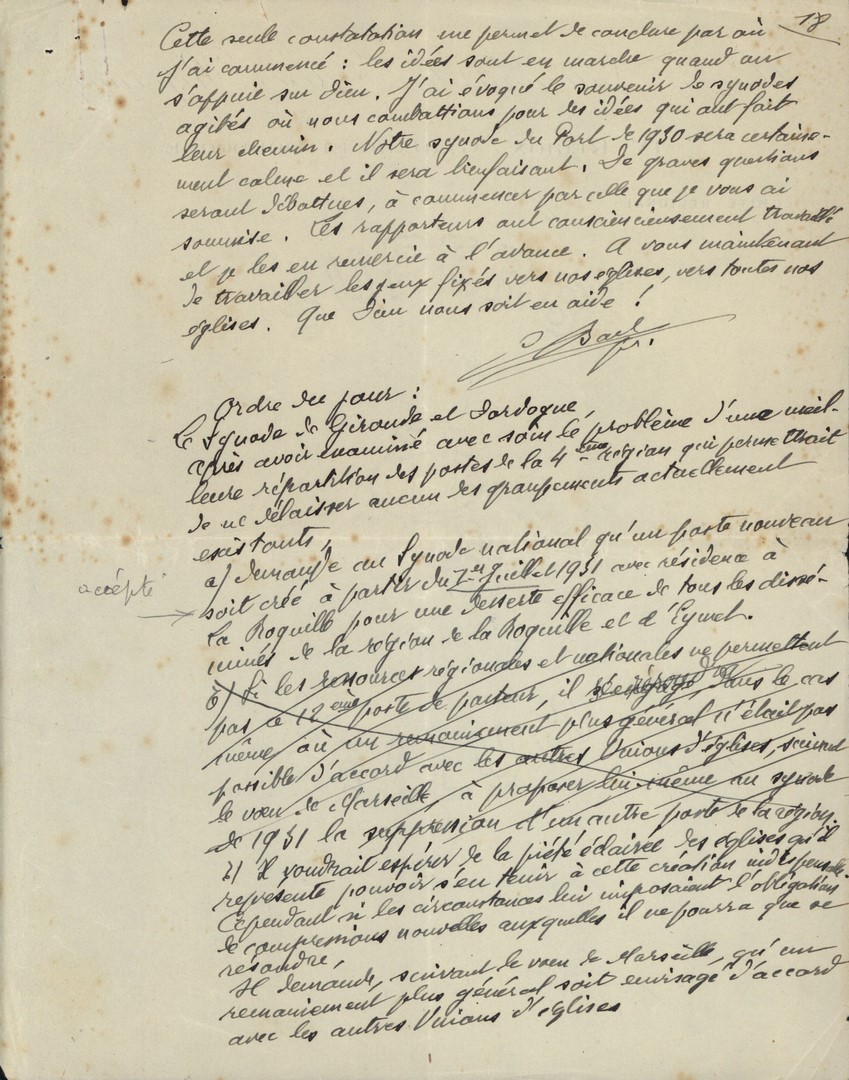 18
Cette seule constatation me permet de conclure par où
j'ai commencé : les idées sont en marche quand on
s'appuie sur Dieu. J'ai évoqué le souvenir de synodes
agités où nous combattions pour des idées qui ont fait
leur chemin. Notre synode du Port de 1930 sera certaine-
ment calme et il sera bienfaisant. De graves questions
seront débattues, à commencer par celle que je vous ai
soumise. Les rapporteurs ont consciencieusement travaillé
et je les en remercie à l'avance. A vous maintenant
de travailler les yeux fixés vers nos églises, vers toutes nos
églises. Que Dieu nous soit en aide !
Ordre du jour :
Le Synode de Gironde et Dordogne,
après avoir examiné avec soin le problème d'une meil-
leure répartition des postes de la 4ème région qui permettrait
de ne délaisser aucun des groupements actuellement
existants,
a) demande au Synode national qu'un poste nouveau
accepté
soit créé à partir du 1er Juillet 1931 avec résidence à
La Roquille pour une desserte efficace de tous les dissé-
minés de la région de la Roquille et d'Eymet.
b) Si les ressources régionales et nationales ne permettent
pas ce 18ème poste de pasteur, il dans le cas
même où un remaniement plus général n'était pas
possible d'accord avec les autres Unions d'églises, suivant
le vœu de Marseille, à proposer lui-même au synode
de 1931 la suppression d'un autre poste de la région.
2) Il voudrait espérer de la piété éclairée des églises qu'il
représente pouvoir s'en tenir à cette création indispensable.
Cependant si les circonstances lui imposaient l'obligation
de compressions nouvelles auxquelles il ne pourra que se
résoudre,
Il demande, suivant le vœu de Marseille, qu'un
remaniement plus général soit envisagé d'accord
avec les autres Unions d'églises